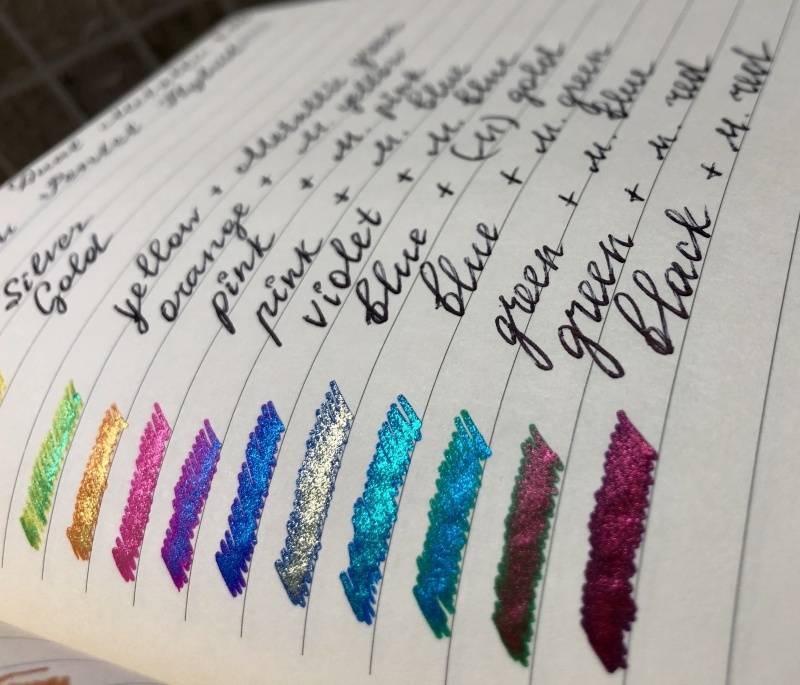 Dual Metallic
Pentel Hybrid
Silver
Gold
yellow + Metallic green
orange + M. yellow
pink + M. pink
pink + M. blue
violet + M. blue
blue + (M) gold
blue + M. green
green + M. blue
green + M. red
black + M. red